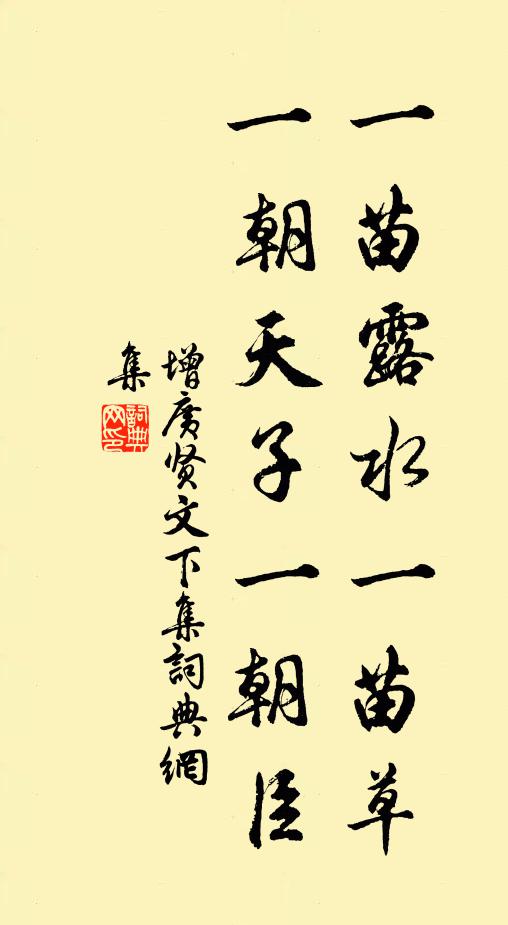 一苗露水一苗草
一朝天子一朝臣
增广贤文下集詞典網
集
詞典網印